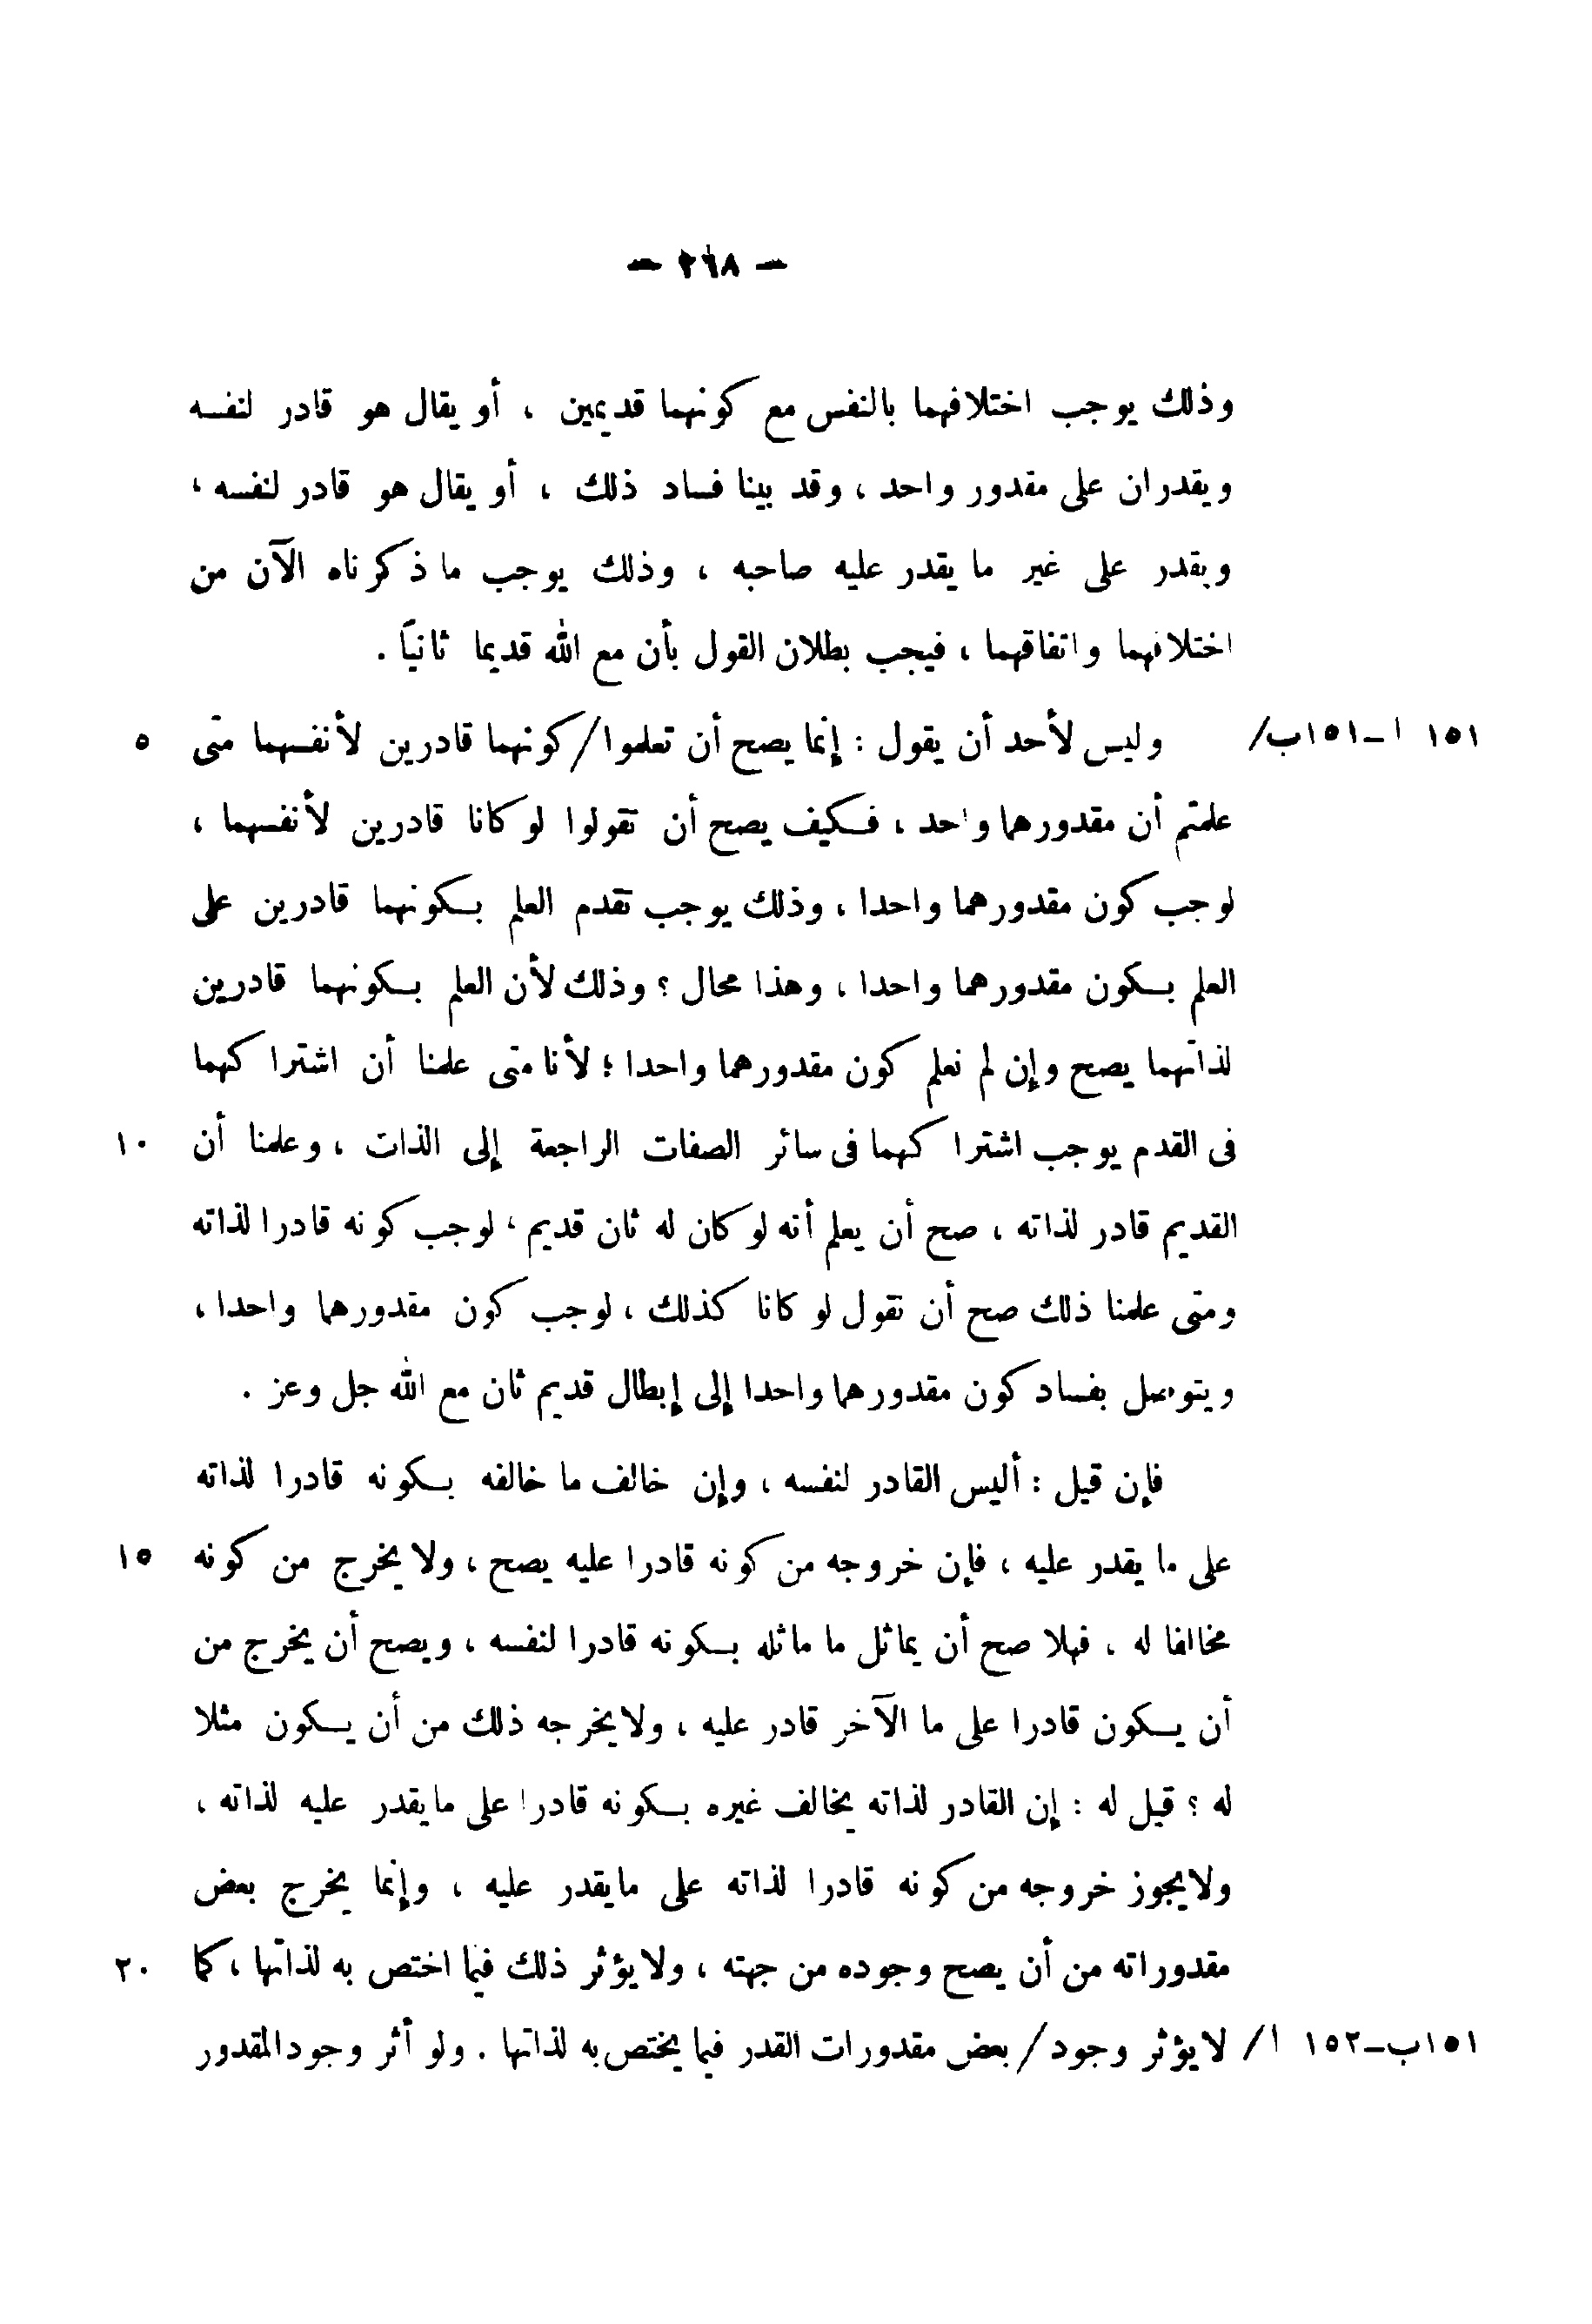 — ٢٦٨ —
وذلك يوجب اختلافهما بالنفس مع كونهما قديمين ، أو يقال هو قادر لنفسه
ويقدران على مقدور واحد ، وقد بينا فساد ذلك ، أو يقال هو قادر لنفسه ،
ويقدر على غير ما يقدر عليه صاحبه ، وذلك يوجب ما ذكرناه الآن من
اختلافهما واتفاقهما ، فيجب بطلان القول بأن مع الله قديما ثانياً .
١٥١ ا ــ ١٥١ب/ وليس لأحد أن يقول : إنما يصح أن تعلموا/كونهما قادرين لأنفسهما متى ٥
علمتم أن مقدورهما واحد ، فكيف يصح أن تقولوا لو كانا قادرين لأنفسهما ،
لوجب كون مقدورهما واحدا ، وذلك يوجب تقدم العلم بكونهما قادرين على
العلم بكون مقدورهما واحدا ، وهذا محال ؟ وذلك لأن العلم بكونهما قادرين
لذاتهما يصح وإن لم نعلم كون مقدورهما واحدا ؛ لأنا متى علمنا أن اشتراكهما
فى القدم يوجب اشتراكهما فى سائر الصفات الراجعة إلى الذات ، وعلمنا أن ١٠
القديم قادر لذاته ، صح أن يعلم أنه لو كان له ثان قديم ، لوجب كونه قادرا لذاته
ومتى علمنا ذلك صح أن نقول لو كانا كذلك ، لوجب كون مقدورهما واحدا ،
ويتوصل بفساد كون مقدورهما واحدا إلى إبطال قديم ثان مع الله جل وعز .
فإن قيل : أليس القادر لنفسه ، وإن خالف ما خالفه بكونه قادرا لذاته
على ما يقدر عليه ، فإن خروجه من كونه قادرا عليه يصح ، ولا يخرج من كونه ١٥
مخالفا له ، فهلا صح أن يماثل ما ماثله بكونه قادرا لنفسه ، ويصح أن يخرج من
أن يكون قادرا على ما الآخر قادر عليه ، ولا يخرجه ذلك من أن يكون مثلا
له ؟ قيل له : إن القادر لذاته يخالف غيره بكونه قادرا على ما يقدر عليه لذاته ،
ولا يجوز خروجه من كونه قادرا لذاته على ما يقدر عليه ، وإنما يخرج بعض
مقدوراته من أن يصح وجوده من جهته ، ولا يؤثر ذلك فيما اختص به لذاتها ، كما ٢٠
١٥١ب ــ ١٥٢ ا/ لا يؤثر وجود/ بعض مقدورات القدر فيما يختص به لذاتها . ولو أثر وجود المقدور